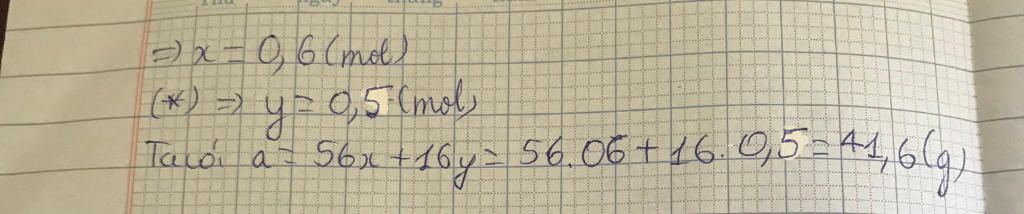 Thứ ngày tháng
=> x = 0,6 (mol)
(*) => y = 0,5 (mol)
Ta có: a = 56x + 16y = 56.06 + 16.0,5 = 41,6 (g)